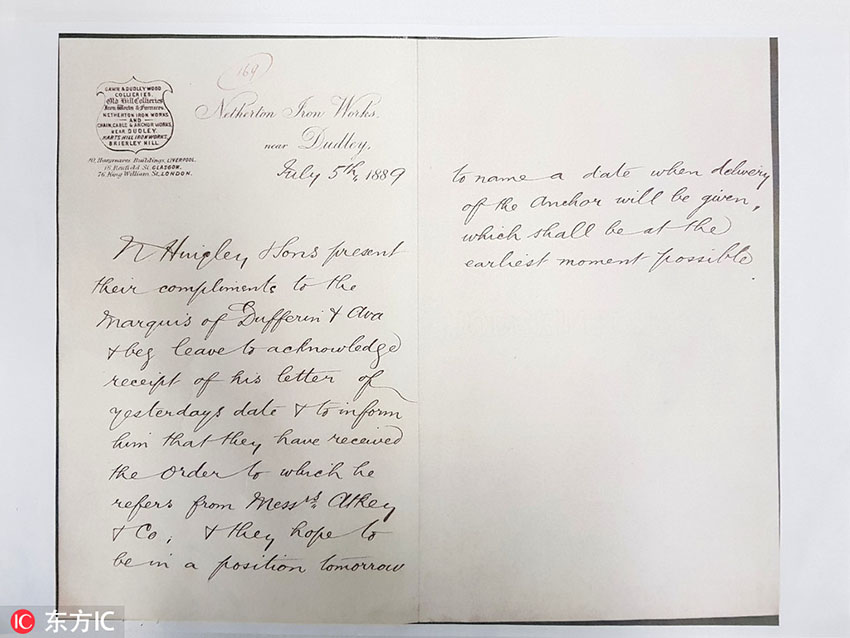 169
CAWN & DUDLEY WOOD
COLLIERIES.
Old Hill Collieries
Iron Works & Furnaces
NETHERTON IRON WORKS
AND
CHAIN, CABLE & ANCHOR WORKS,
NEAR DUDLEY.
HARTS HILL IRONWORKS,
BRIERLEY HILL
10, Hargreaves Buildings, LIVERPOOL.
18 Renfield St GLASGOW.
76 King William St, LONDON.
Netherton Iron Works,
near Dudley,
July 5th, 1889
N Hingley & Sons present
their compliments to the
Marquis of Dufferin & Ava
& beg leave to acknowledge
receipt of his letter of
yesterdays date & to inform
him that they have received
the order to which he
refers from Messrs Atkey
& Co, & they hope to
be in a position tomorrow
to name a date when delivery
of the Anchor will be given,
which shall be at the
earliest moment possible.
IC 东方IC